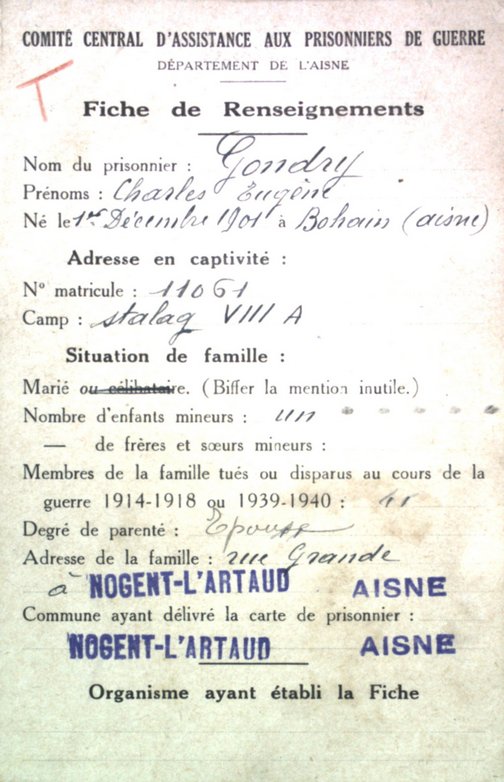 COMITÉ CENTRAL D'ASSISTANCE AUX PRISONNIERS DE GUERRE
DÉPARTEMENT DE L'AISNE
T
Fiche de Renseignements
Nom du prisonnier : Gondry
Prénoms : Charles Eugène
Né le 1er Décembre 1901 à Bohain (aisne)
Adresse en captivité :
N° matricule : 11061
Camp : stalag VIII A
Situation de famille :
Marié ou célibataire. (Biffer la mention inutile.)
Nombre d'enfants mineurs : un
— de frères et sœurs mineurs :
Membres de la famille tués ou disparus au cours de la
guerre 1914-1918 ou 1939-1940 :
Degré de parenté : Epouse
Adresse de la famille : rue Grande
à NOGENT-L'ARTAUD AISNE
Commune ayant délivré la carte de prisonnier :
NOGENT-L'ARTAUD AISNE
Organisme ayant établi la Fiche